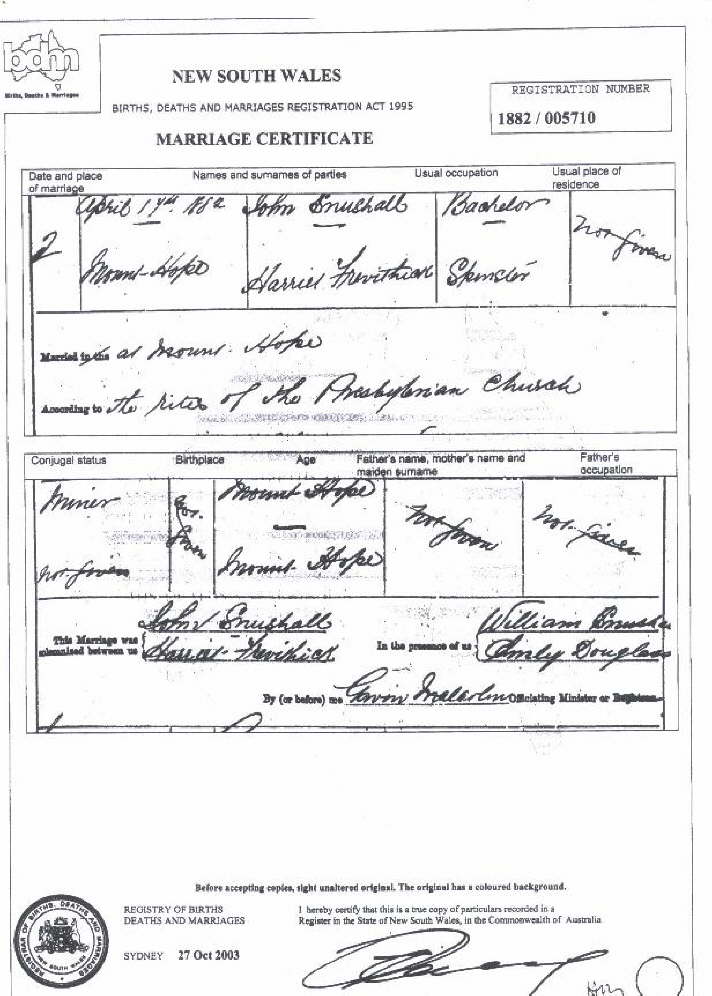 bdm
Births, Deaths & Marriages
NEW SOUTH WALES
BIRTHS, DEATHS AND MARRIAGES REGISTRATION ACT 1995
MARRIAGE CERTIFICATE
REGISTRATION NUMBER
1882 / 005710
Date and place of marriage
Names and surnames of parties
Usual occupation
Usual place of residence
2
April 17th 1882
John Enushall
Bachelor
Not Given
Mount Hope
Harriet Trevithick
Spinster
Married in the at Mount Hope
According to the rites of the Presbyterian Church
Conjugal status
Birthplace
Age
Father's name, mother's name and maiden surname
Father's occupation
Miner
Not Given
Mount Hope
Not Given
Not Given
Not Given
Mount Hope
This Marriage was solemnised between us
John Enushall
Harriet Trevithick
In the presence of us
William
Emily Douglass
By (or before) me Gavin Malcolm Officiating Minister or Registrar
Before accepting copies, sight unaltered original. The original has a coloured background.
REGISTRY OF BIRTHS
DEATHS AND MARRIAGES
SYDNEY 27 Oct 2003
I hereby certify that this is a true copy of particulars recorded in a
Register in the State of New South Wales, in the Commonwealth of Australia
REGISTRAR OF BIRTHS, DEATHS AND MARRIAGES
NEW SOUTH WALES